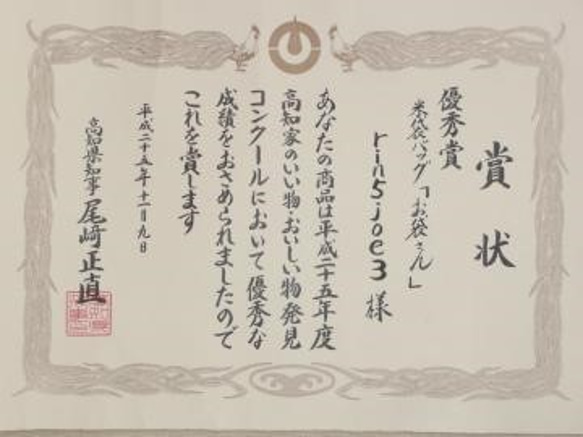 賞状
優秀賞
米袋バッグ「お袋さん」
rin5.joe3 様
あなたの商品は平成二十五年度
高知家のいい物・おいしい物発見
コンクールにおいて優秀な
成績をおさめられましたので
これを賞します
平成二十五年十一月九日
高知県知事 尾﨑正直